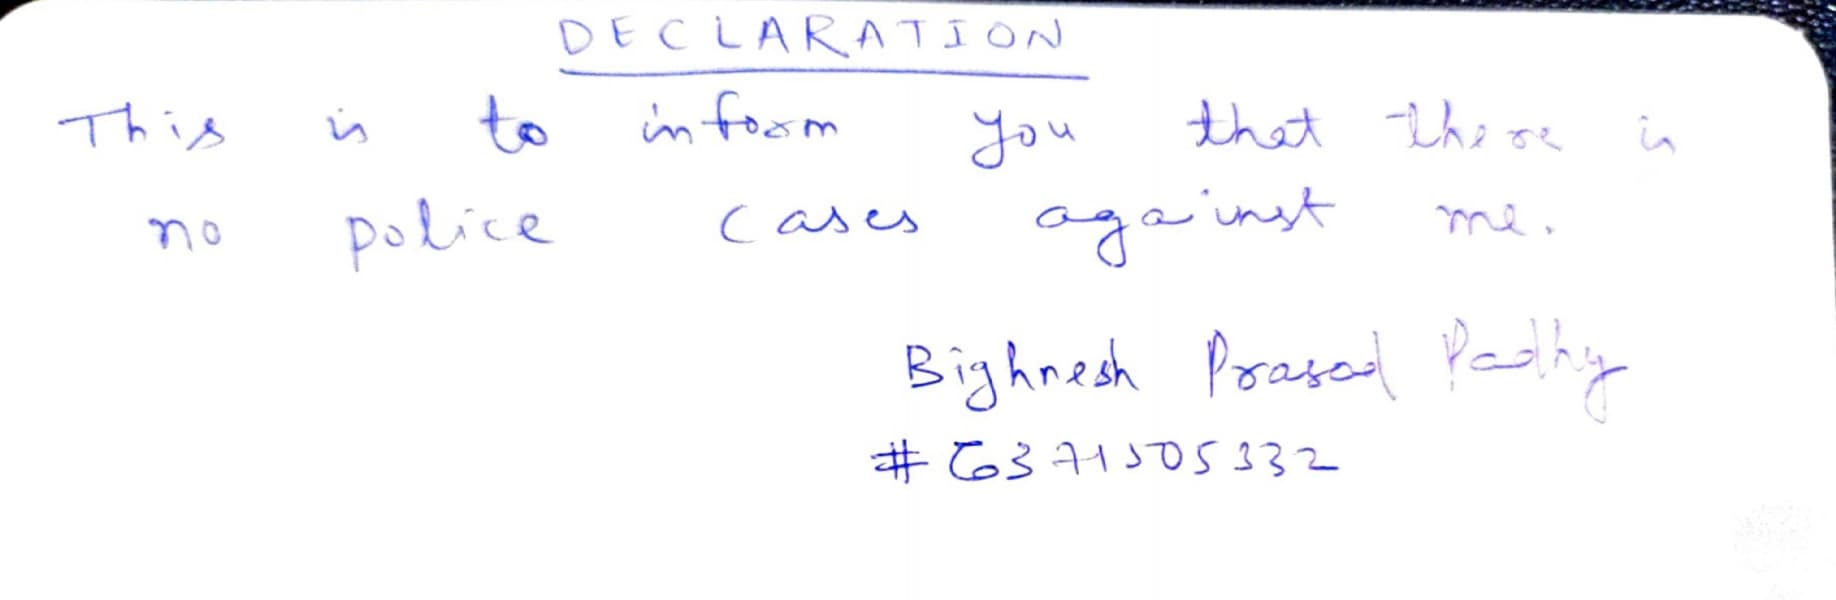 DECLARATION
This is to inform you that there is
no police cases against me.
Bighnesh Prasad Padhy
#6371505332